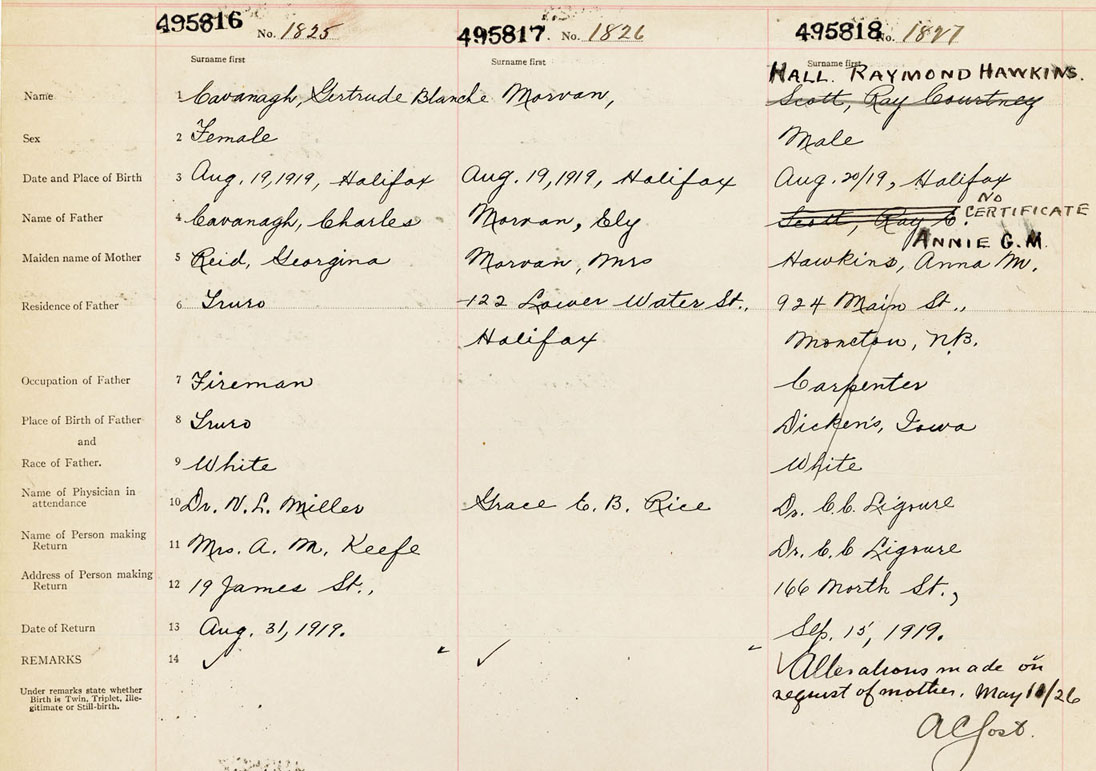 495816 No. 1825 495817. No. 1826 495818 No. 1827
Surname first Surname first Surname first
HALL. RAYMOND HAWKINS.
Name 1 Cavanagh, Gertrude Blanche Morvan, Scott, Ray Courtney
Sex 2 Female Male
Date and Place of Birth 3 Aug. 19, 1919, Halifax Aug. 19, 1919, Halifax Aug. 20/19, Halifax
NO
Name of Father 4 Cavanagh, Charles Morvan, Ely Scott, Ray C. CERTIFICATE
ANNIE G.M.
Maiden name of Mother 5 Reid, Georgina Morvan, Mrs Hawkins, Anna M.
Residence of Father 6 Truro 122 Lower Water St., 924 Main St.,
Halifax Moncton, N.B.
Occupation of Father 7 Fireman Carpenter
Place of Birth of Father 8 Truro Dicken's, Iowa
and
Race of Father. 9 White White
Name of Physician in attendance 10 Dr. V. L. Miller Grace E. B. Rice Dr. C. C. Ligoure
Name of Person making Return 11 Mrs. A. M. Keefe Dr. C. C Ligoure
Address of Person making Return 12 19 James St., 166 North St.,
Date of Return 13 Aug. 31, 1919. Sep. 15, 1919.
REMARKS 14 ✓ " ✓ " ✓ Alterations made on
Under remarks state whether
Birth is Twin, Triplet, Ille-
gitimate or Still-birth.
request of mother. May /26
A C Jost.